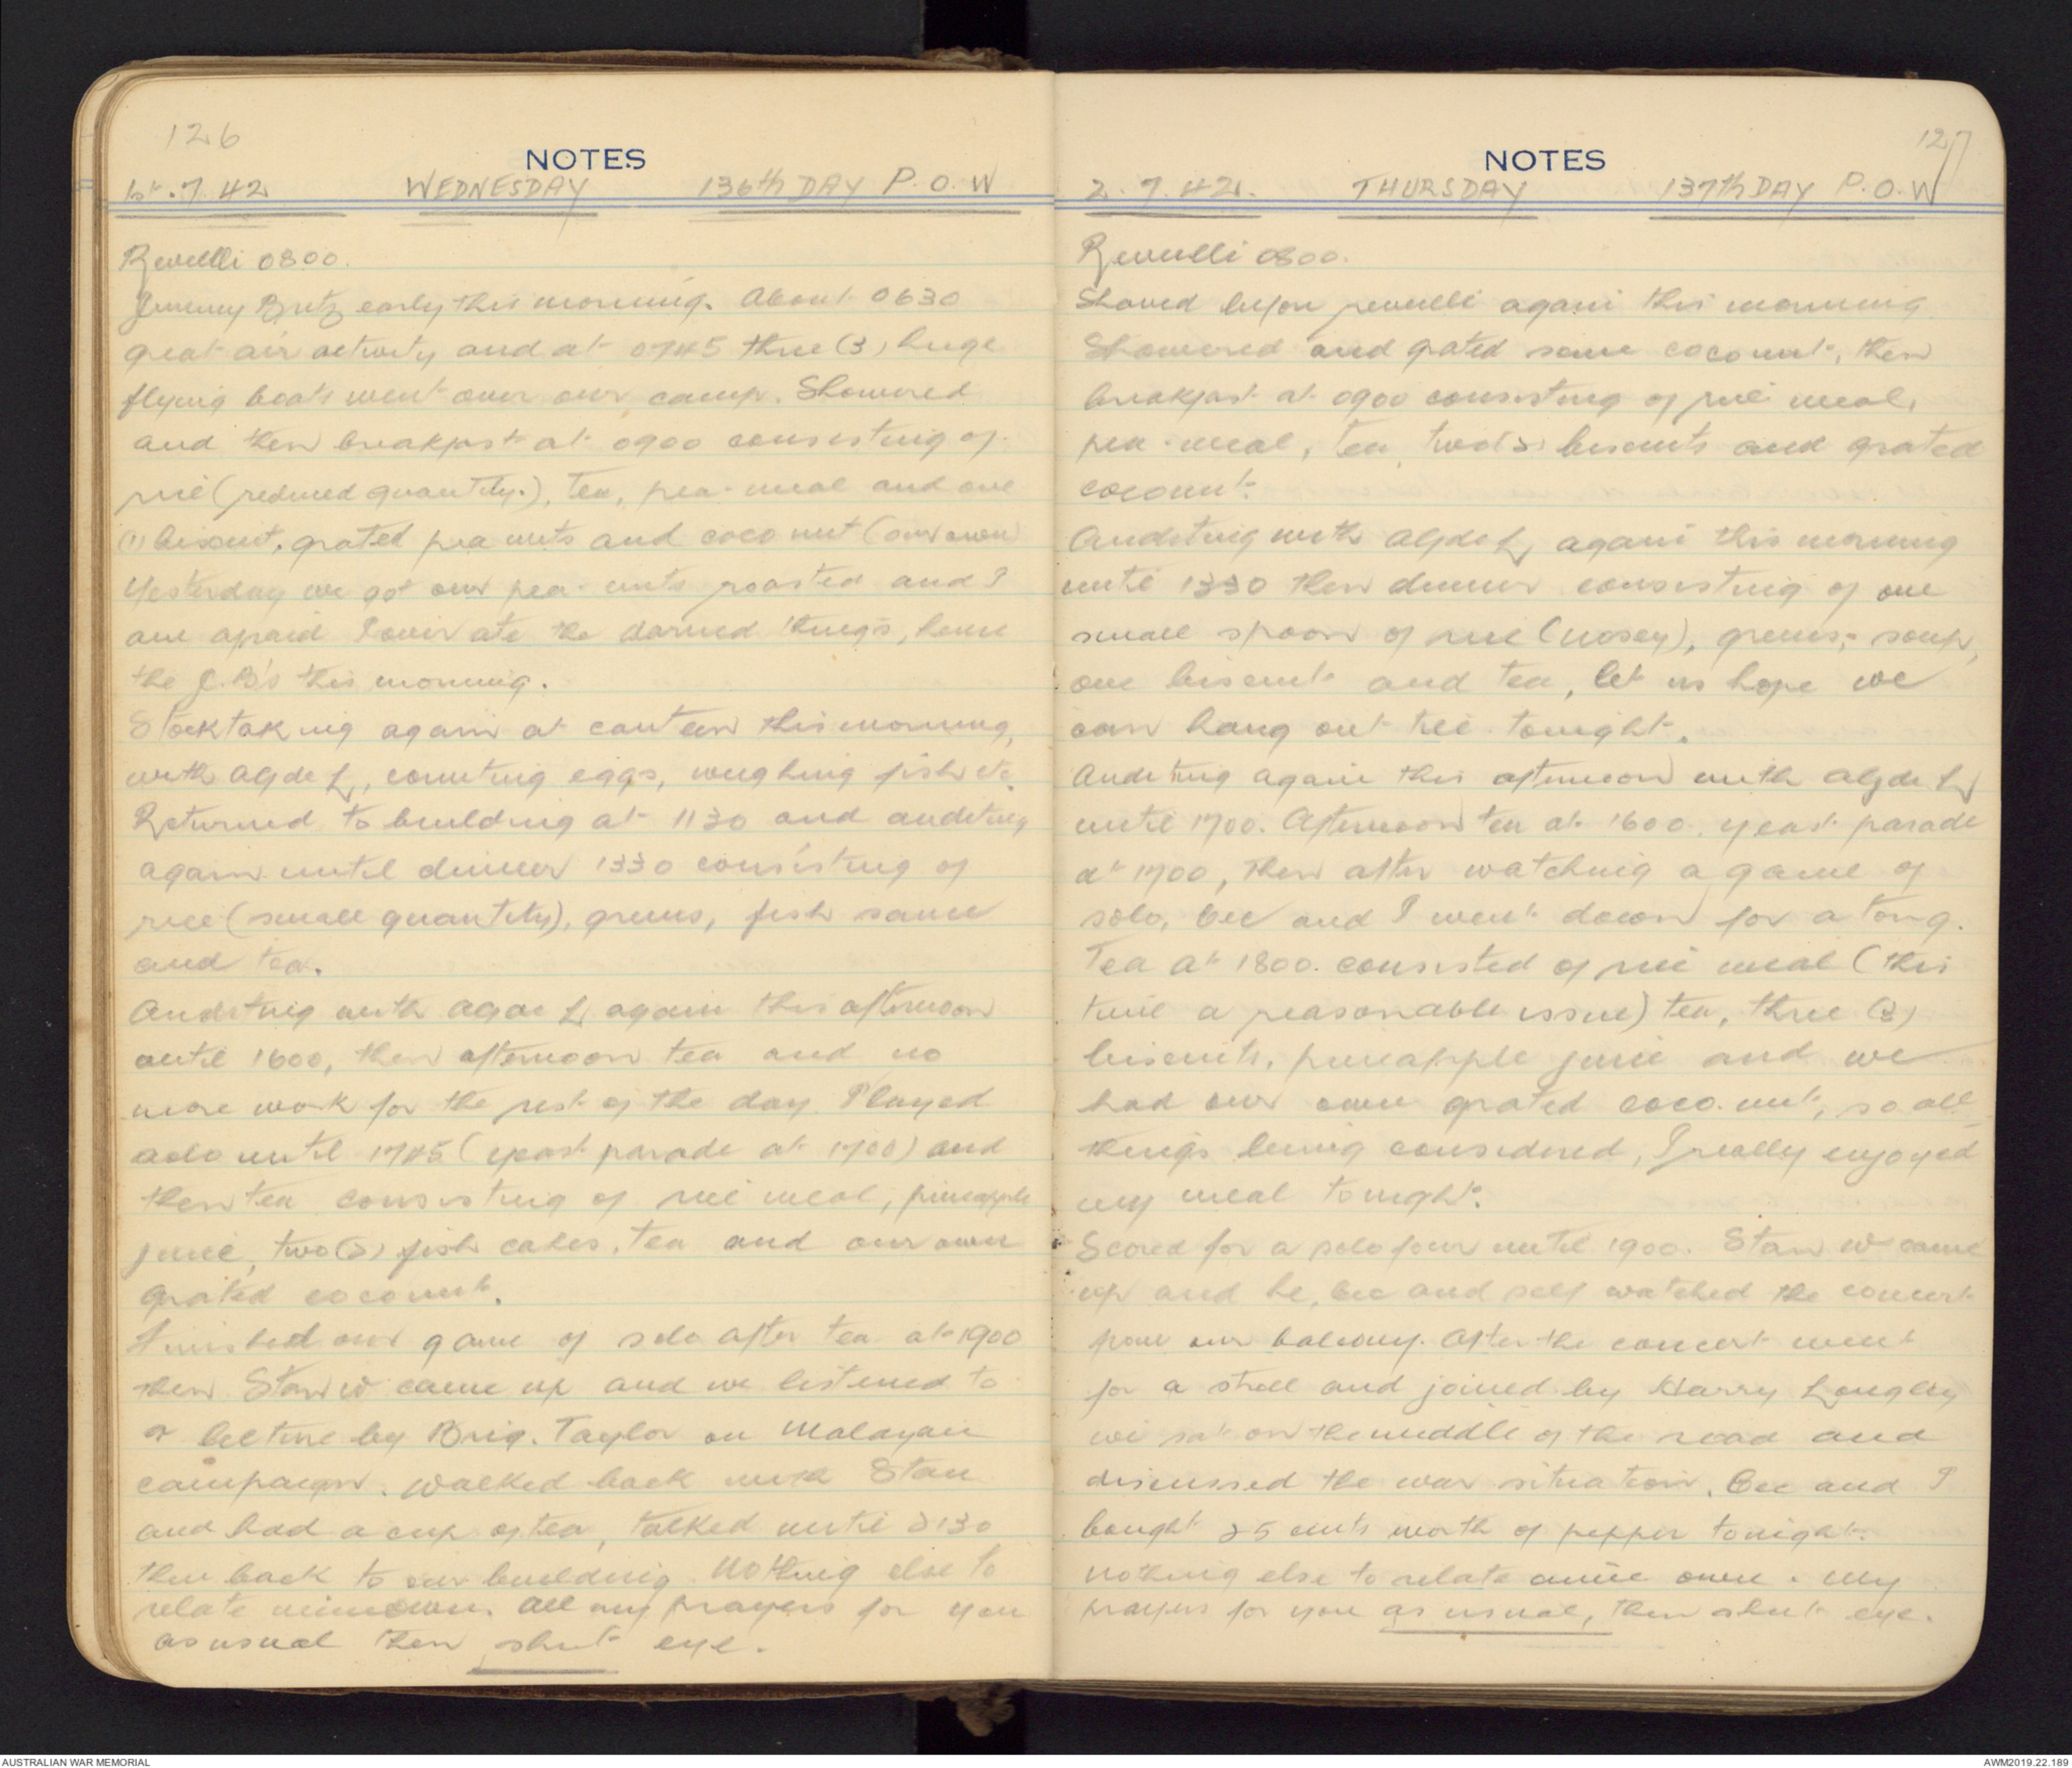 126
NOTES
1st.7.42 WEDNESDAY 136th DAY P.O.W
Revelli 0800.
Jimmy Britz early this morning. About 0630
great air activity and at 0745 three (3) huge
flying boats went over our camp. Showered
and then breakfast at 0900 consisting of
rice (reduced quantity.), Tea, pea-meal and one
(1) biscuit, grated pea nuts and coco nut (our own)
Yesterday we got our pea-nuts roasted and I
am afraid I over ate the darned things, hence
the J.B's this morning.
Stocktaking again at canteen this morning,
with Alf de L, counting eggs, weighing fish etc.
Returned to building at 1130 and auditing
again until dinner 1330 consisting of
rice (small quantity), greens, fish sauce
and tea.
Auditing with Alf de L again this afternoon
until 1600, then afternoon tea and no
more work for the rest of the day. Played
solo until 1745 (yeast parade at 1700) and
then tea consisting of rice meal, pineapple
juice, two (2) fish cakes, tea and our own
grated coconut.
Finished our game of solo after tea at 1900
then Stan W came up and we listened to
a lecture by Brig. Taylor on Malayan
campaign. Walked back with Stan
and had a cup of tea, talked until 2130
then back to our building. Nothing else to
relate mine own. All my prayers for you
as usual then shut eye.
127
NOTES
2.7.42. THURSDAY 137th DAY P.O.W
Revelli 0800.
Shaved before revelli again this morning
Showered and grated some coconut, then
breakfast at 0900 consisting of rice meal,
pea-meal, tea, two (2) biscuits and grated
coconut.
Auditing with Alf de L again this morning
until 1330 then dinner consisting of one
small spoon of rice ( ), greens, soup,
one biscuit and tea, let us hope we
can hang out till tonight.
Auditing again this afternoon with Alf de L
until 1700. Afternoon tea at 1600, yeast parade
at 1700, then after watching a game of
solo, Cec and I went down for a tong.
Tea at 1800. consisted of rice meal (this
time a reasonable issue) tea, three (3)
biscuits, pineapple juice and we
had our own grated coco-nut, so all
things being considered, I really enjoyed
my meal tonight.
Scored for a solo four until 1900. Stan W came
up and he, Cec and self watched the concert
from our balcony. After the concert went
for a stroll and joined by Harry Longley
we sat on the middle of the road and
discussed the war situation. Cec and I
bought 25 cents worth of pepper tonight.
Nothing else to relate mine own. My
prayers for you as usual, then shut eye.
AUSTRALIAN WAR MEMORIAL
AWM2019.22.189